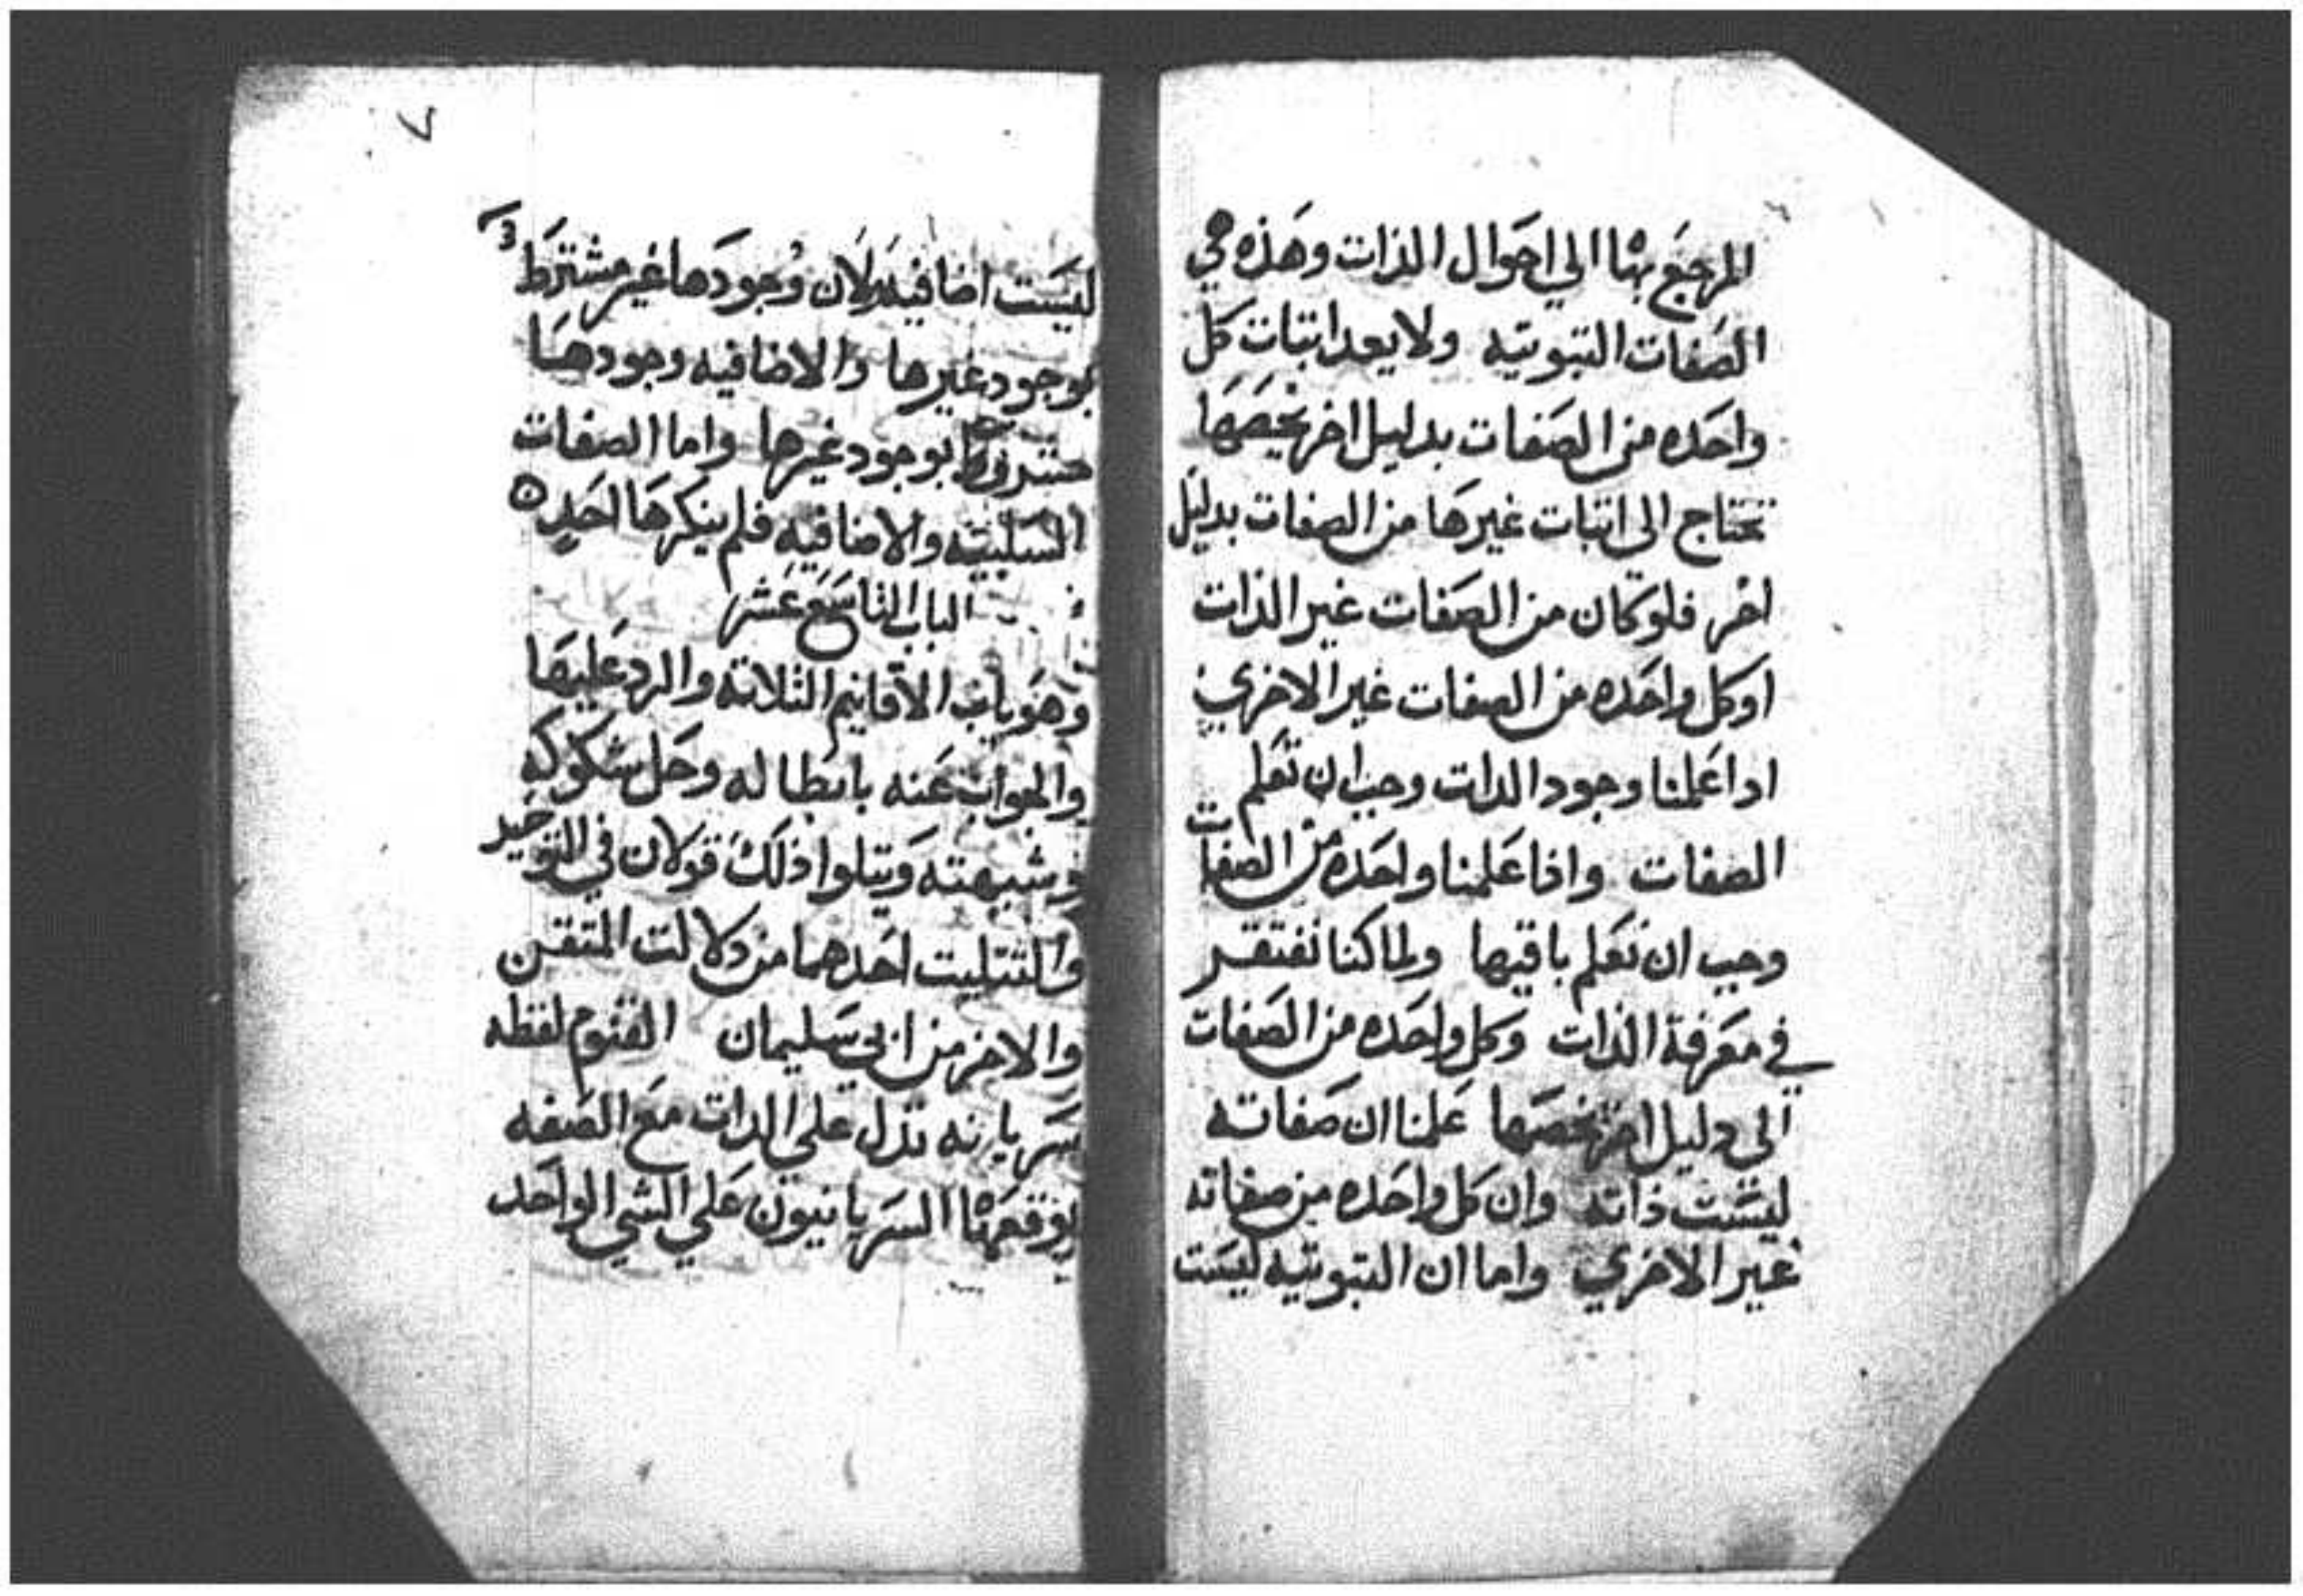 المرجع بها الي احوال الذات وهذه هي
الصفات التبوتيه ولا بعد اتبات كل
واحده من الصفات بدليل اخر يخصها
تحتاج الى اتبات غيرها من الصفات بدليل
اخر فلو كان من الصفات غير الذات
او كل واحده من الصفات غير الاخري
ادا علمنا وجود الدات وجب ان نعلم
الصفات واذا علمنا واحده من الصفات
وجب ان نعلم باقيها ولما كنا نفتقر
في معرفة الذات وكل واحده من الصفات
الى دليل اخر يخصها علمنا ان صفاته
ليست ذاته وان كل واحده من صفاته
غير الاخري واما ان التبوتيه ليست
٧
ليست اضافيه لان وجودها غير مشترط
بوجود غيرها والاضافيه وجودها
مشترط بوجود غيرها واما الصفات
السلبيه والاضافيه فلم ينكرها احد
الباب التاسع عشر
وهو باب الاقانيم الثلاثة والرد عليها
والجواب عنه بابطاله وحل شكوكه
وشبهته ويتلوا ذلك قولان في التوحيد
والتتليت احدهما من دلالت المتقن
والاخر من ابي سليمان القنوم لفظه
سريانه تدل علي الدات مع الصفه
يوقعها السريانيون علي الشي الواحد